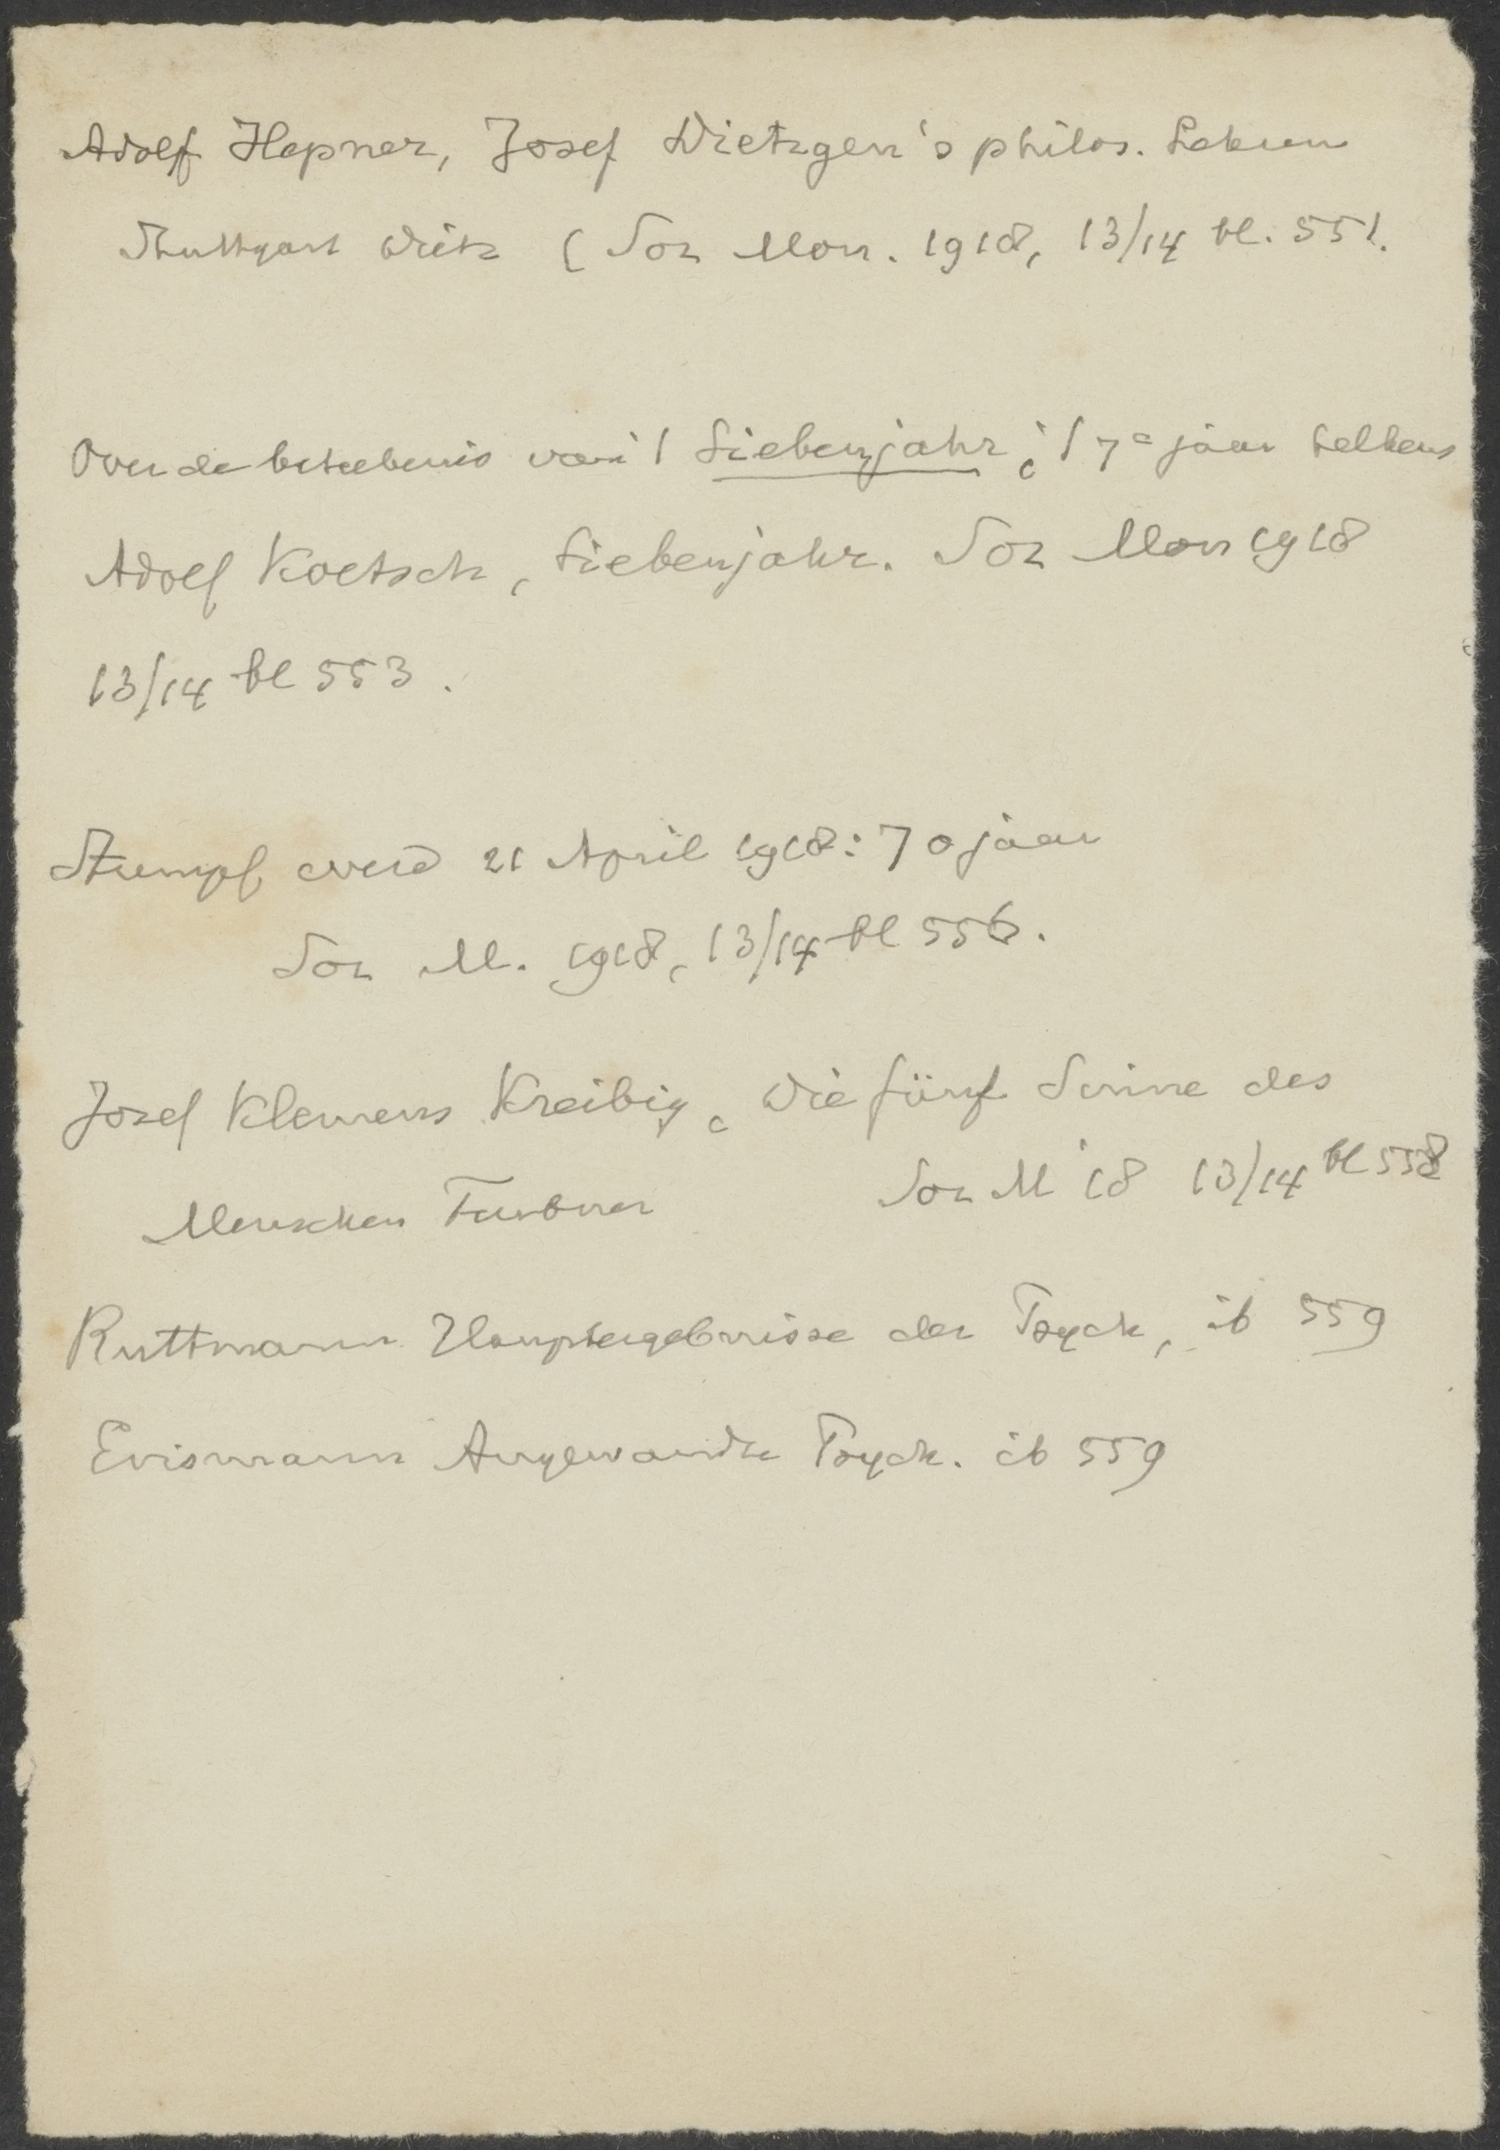 Adolf Hepner, Josef Dietzgen's philos. Lehren
Stuttgart Dietz (Soz Mon. 1918, 13/14 bl. 551.
Over de beteekenis van 't Siebenjahr, 't 7e jaar telkens
Adolf Koelsch, Siebenjahr. Soz Mon 1918
13/14 bl 553.
Stumpf werd 21 April 1918: 70 jaar
Soz M. 1918, 13/14 bl 556.
Josef Klemens Kreibig, Die fünf Sinne des
Menschen Teubner Soz M '18 13/14 bl 558
Ruttmann Hauptergebnisse der Psych, ib 559
Erismann Angewandte Psych. ib 559